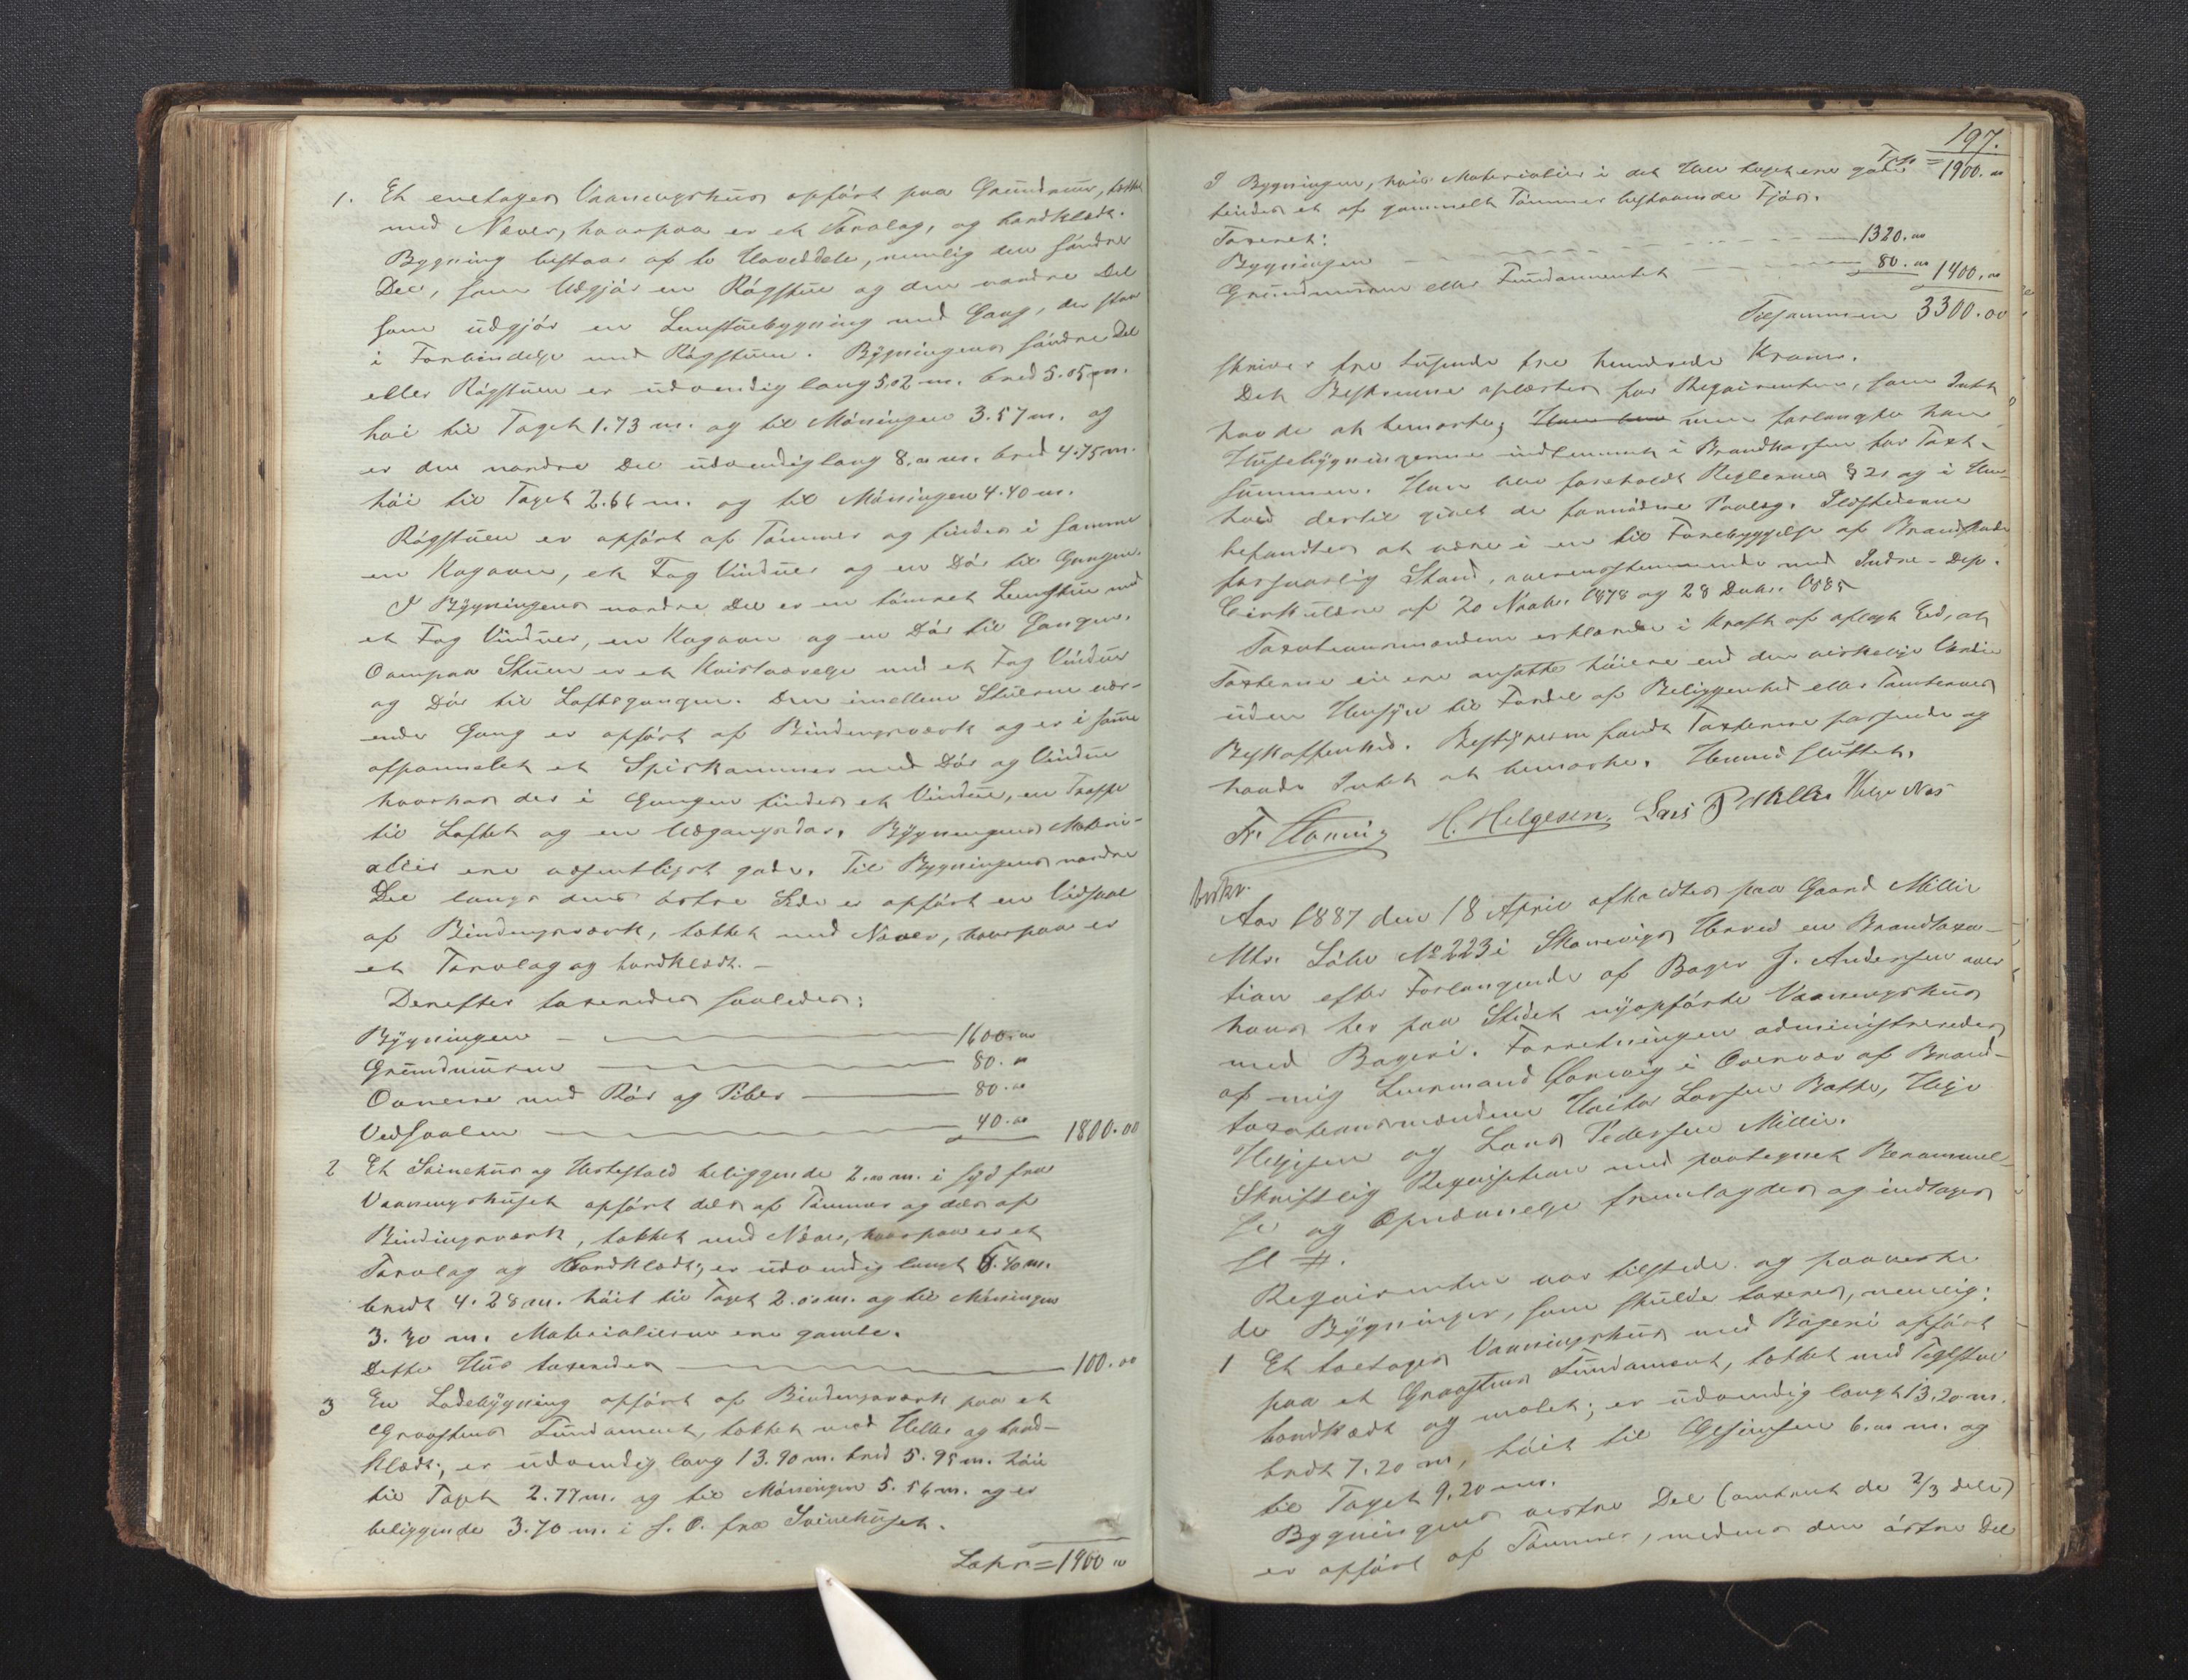 1. Et enetages Vaaningshus opført paa Grundmur, tækket
med Næver, hvorpaa er et Torvlag, og bordklædt.
Bygning bestaar af to Hoveddele, nemlig den søndre
Del, som udgjør en Røgstue og den nordre Del
som udgjør en Lemstuebygning med Gang, der staar
i Forbindelse med Røgstuen. Bygningens søndre Del
eller Røgstuen er udvendig lang 5,02 m. bred 5.05 m.
høi til Taget 1.73 m. og til Møningen 3.57 m. og
er den nordre Del udvendig lang 8,00 m. bred 4.75 m.
høi til Taget 2.66 m. og til Møningen 4.40 m.
Røgstuen er opført af Tømmer og findes i samme
en Kogovn, et Fag Vinduer og en Dør til Gangen.
I Bygningens nordre Del er en tømret Lemstue med
et Fag Vinduer, en Kogovn og en Dør til Gangen.
Ovenpaa Stuen er et Kvistværelse med et Fag Vinduer
og Dør til Loftsgangen. Den imellem Stuerne vær-
ende Gang er opført af Bindingsværk og er i samme
afpannelet et Spiskammer med Dør og Vindue
hvorhos der i Gangen findes et Vindue, en Trappe
til Loftet og en Udgangsdør. Bygningens Materi-
alier ere væsentligst gode. Til Bygningens nordre
Del langs dens østre Side er opført en Vedsval
af Bindingsværk, tækket med Næver, hvorpaa er
et Torvlag og bordklædt. –
Derefter taxeredes saaledes:
Bygningen – 1600.00
Grundmuren 80.00
Ovnene med Rør og Piber 80.00
Vedsvalen 40.00 1800.00
2 Et Svinehus og Hestestald beliggende 2.00 m. i Syd fra
Vaaningshuset opført dels af Tømmer og dels af
Bindingsværk, tækket med Næver, hvorpaa er et
Torvlag og Bordklædt; er udvendig langt 6.40 m.
bredt 4.28 m. høit til Taget 2.00 m. og til Møningen
3.30 m. Materialierne ere gamle.
Dette Hus taxeredes 100.00
3 En Ladebygning opført af Bindingsværk paa et
Graastens Fundament, tækket med Heller og bord-
klædt; er udvendig lang 13.90 m. bred 5.95 m. høi
til Taget 2.77 m. og til Møningen 5.56 m. og er
beliggende 3.70 m. i S. O. fra Svinehuset.
Lapr = 1900 00
197.
Trsp = 1900.00
I Bygningen, hvis Materialier i det Hele taget ere gode
findes et af gammelt Tømmer bestaaende Fjøs.
Taxeret:
Bygningen 1320.00
Grundmuren eller Fundamentet 80.00 1400.00
Tilsammen 3300.00
skriver tre tusende tre hundrede Kroner.
Det Beskrevne oplæstes for Rekvirenten, som Intet
havde at bemærke, men forlangte han
Husebygningerne indlemmet i Brandkassen for Taxt-
summen. Han blev foreholdt Reglerne § 21 og i Hen-
hold dertil givet de fornødne Paalæg. Ildstederne
befandtes at være i en til Forebyggelse af Brandskade
forsvarlig Stand, overensstemmende med Indre-Dep.
Cirkulære af 20 Novbr. 1878 og 28 Decbr. 1885
Taxationsmændene erklærede i Kraft af aflagt Eed, at
Taxterne ei ere ansatte høiere end den virkelige Værdi
uden Hensyn til Fordel af Beliggenhed eller Tomternes
Beskaffenhed. Bestyreren fandt Taxterne passende og
havde Intet at bemærke. Hermed sluttet.
Fr. Horning H. Helgesen Lars P Millie Helge Næs
beskr.
Aar 1887 den 18 April afholdtes paa Gaard Millie
Mtr. Løbe No 223 i Skonevigs Herred en Brandtaxa-
tion efter Forlangende af Bager J. Andersen over
hans her paa Stedet nyopførte Vaaningshus
med Bageri. Forretningen administreredes
af mig Lensmand Horning i Overvær af Brand-
taxationsmændene Halvor Larsen Bakke, Helge
Helgesen og Lars Pedersen Millie.
Skriftlig Rekvisition med paategnet Berammel-
se og Opnævnelse fremlagdes og indtages
sl #.
Rekvirenten var tilstede og paaviste
de Bygninger, som skulde taxeres, nemlig:
1 Et toetages Vaaningshus med Bageri opført
paa et Graastens Fundament, tækket med Teglsten
bordklædt og malet; er udvendig langt 13.20 m.
bredt 7.20 m, høit til Gesimsen 6.00 m. og
til Taget 9.20 m.
Bygningens vestre Del (omtrent de 2/3 dele)
er opført af Tømmer, medens den østre Del